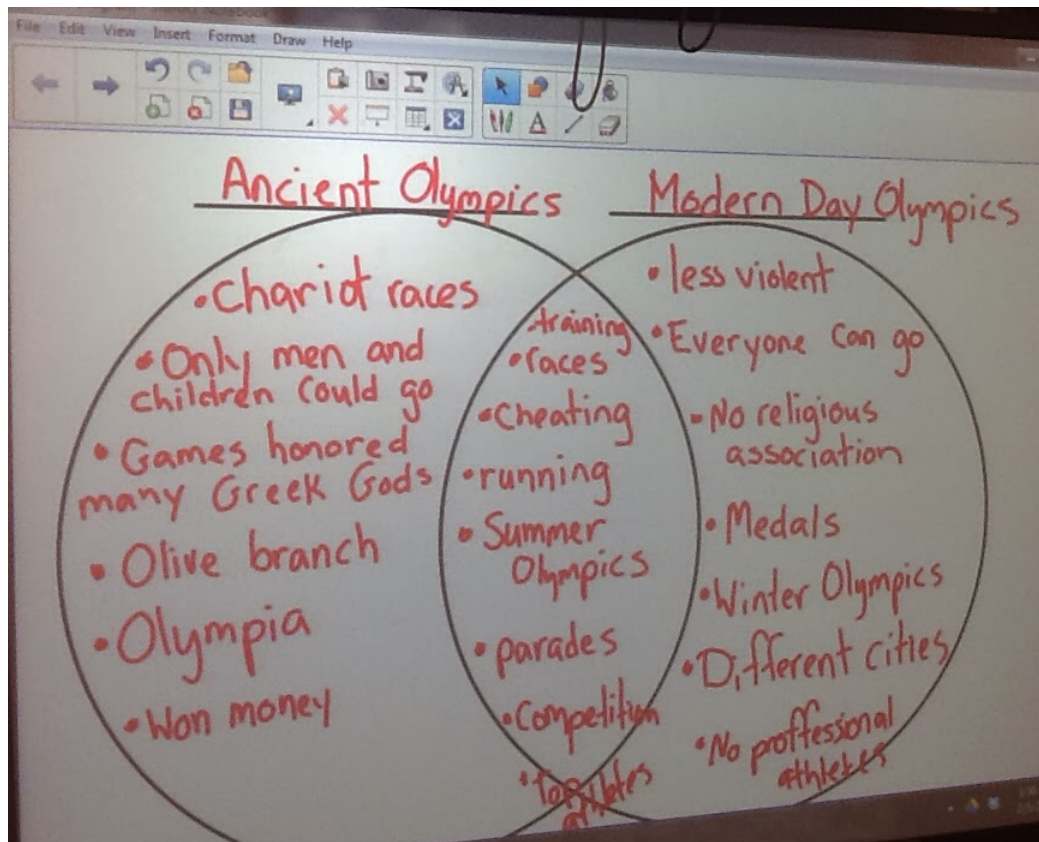 File Edit View Insert Format Draw Help
Ancient Olympics
Modern Day Olympics
•Chariot races
•Only men and
children could go
•Games honored
many Greek Gods
•Olive branch
•Olympia
•Won money
•training
•races
•Cheating
•running
•Summer
Olympics
•parades
•Competition
•less violent
•Everyone can go
•No religious
association
•Medals
•Winter Olympics
•Different cities
•No proffessional
athletes